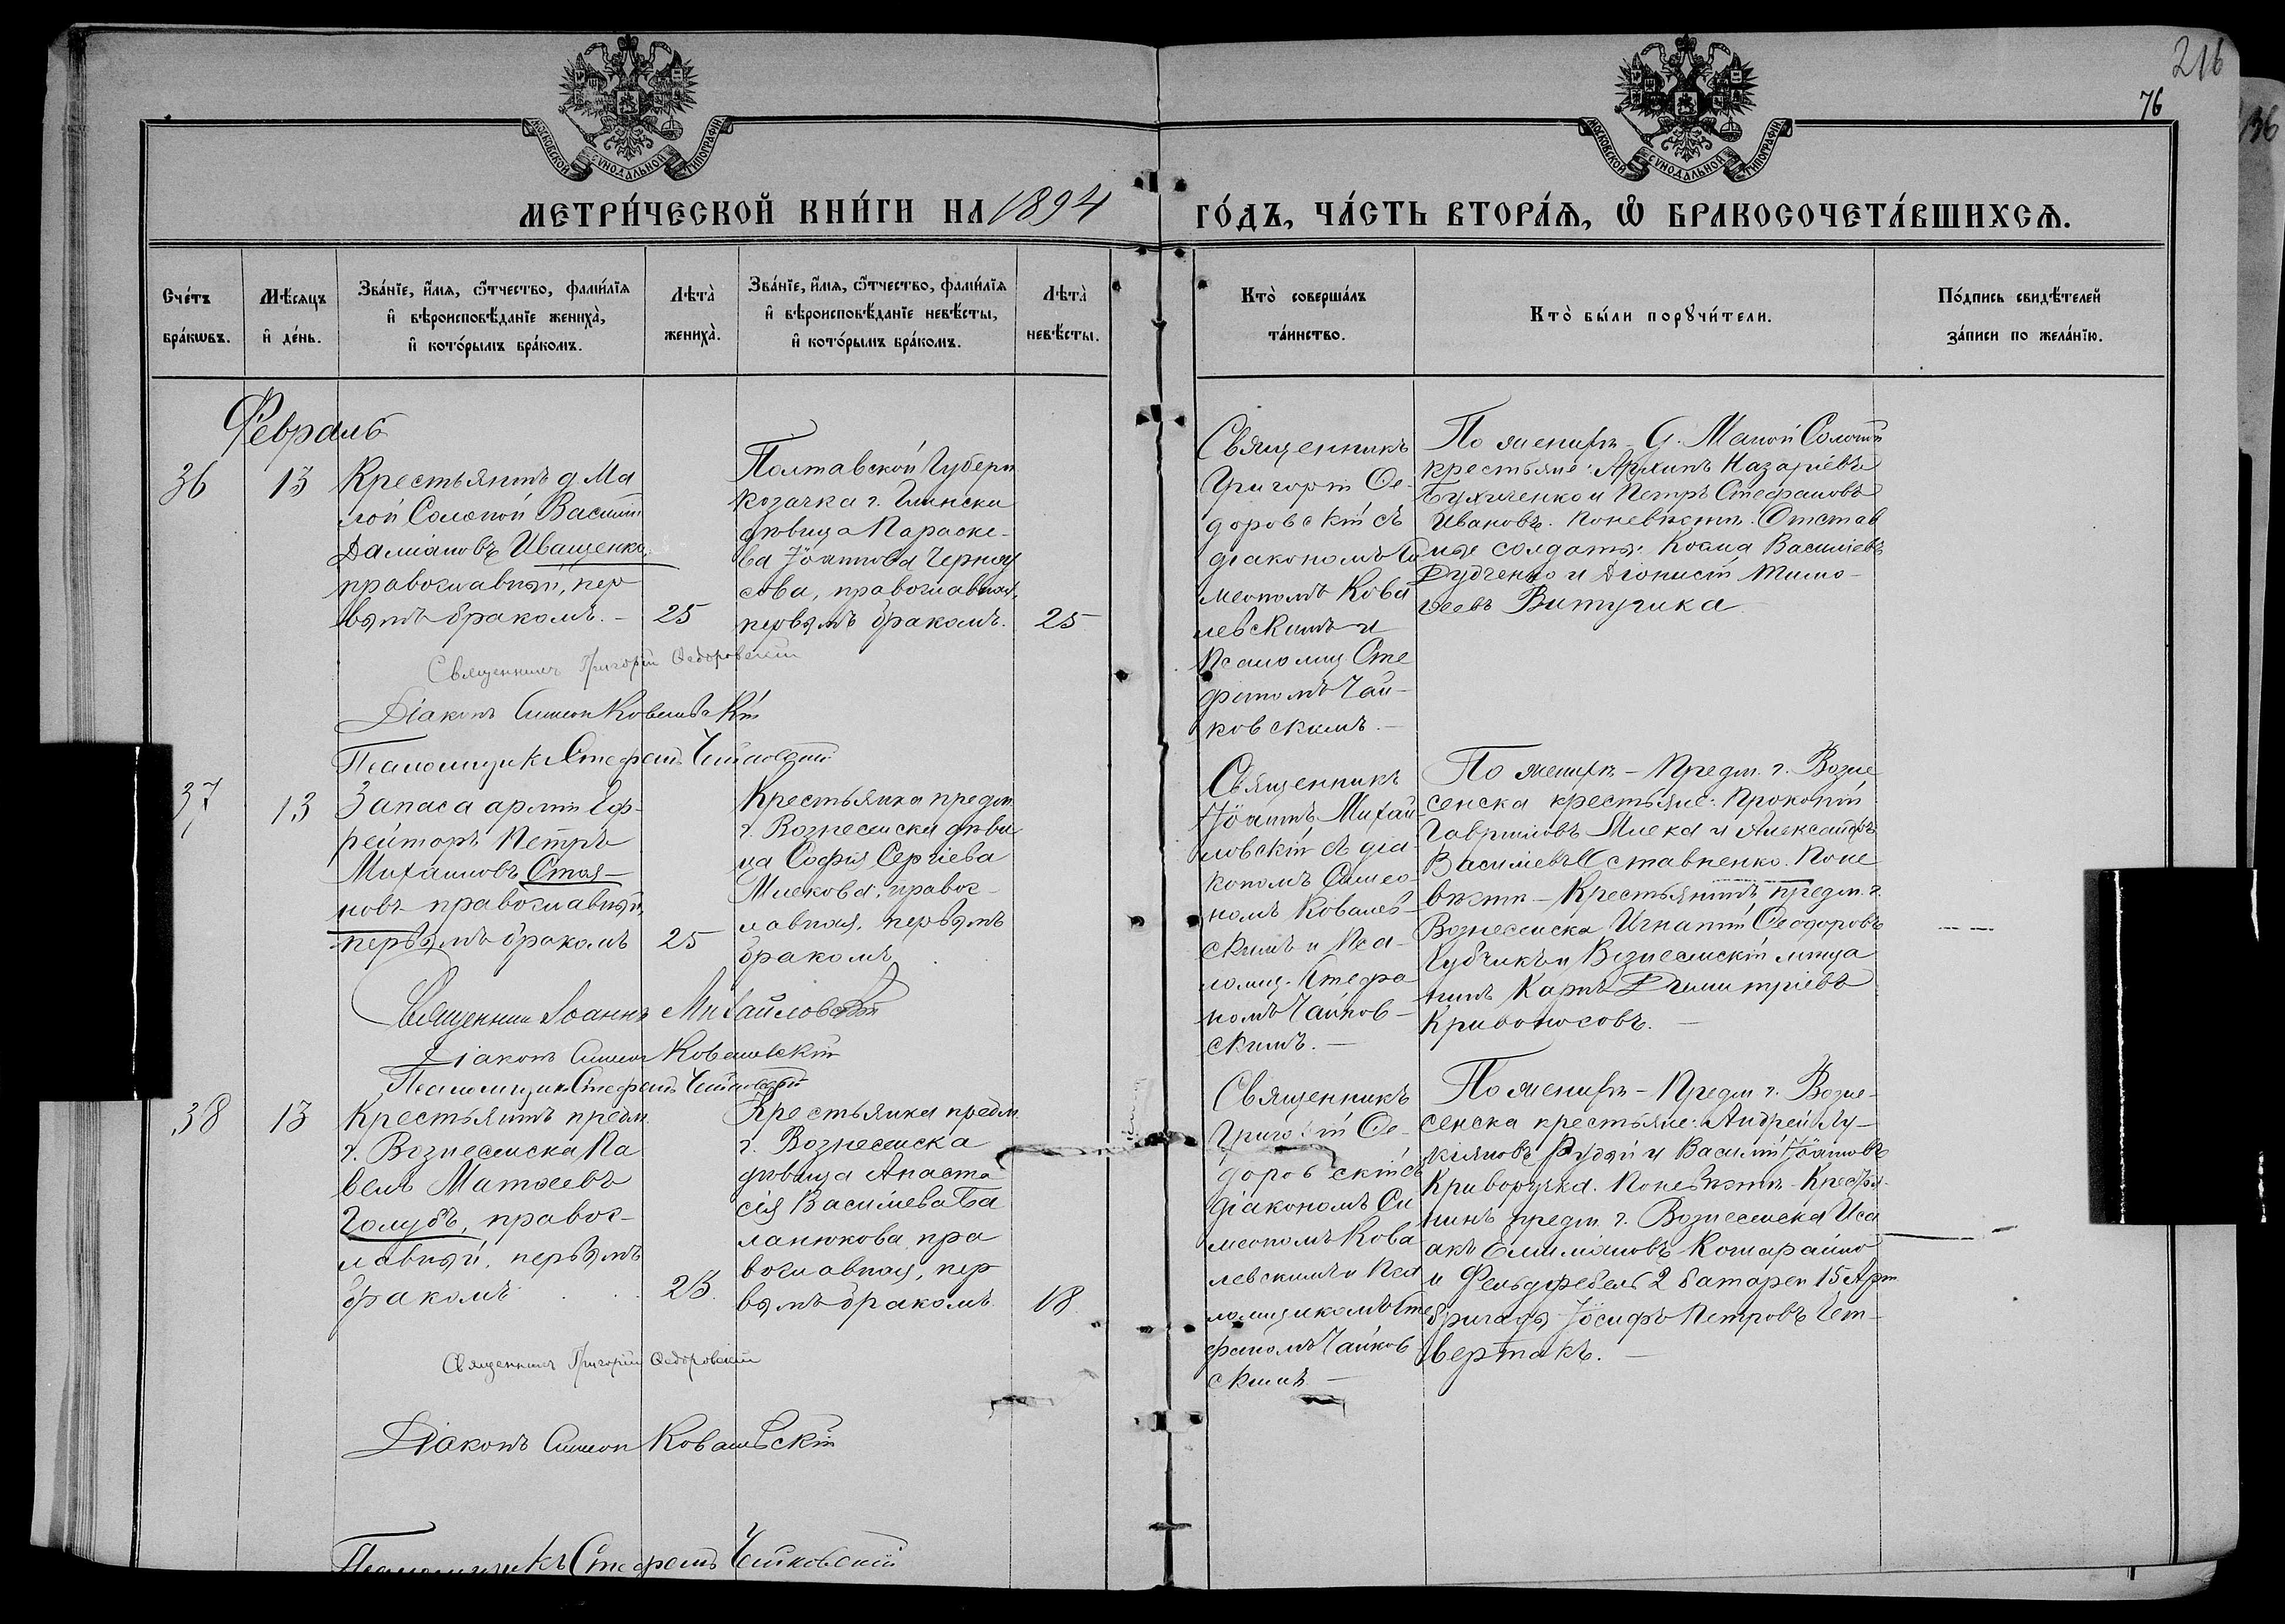 216
76
136
МОСКОВСКОЙ СѴНОДАЛЬНОЙ ТИПОГРАФІИ
МОСКОВСКОЙ СѴНОДАЛЬНОЙ ТИПОГРАФІИ
МЕТРИ́ЧЕСКОЙ КНИ́ГИ НА 1894
ГО́ДЪ, ЧА́СТЬ ВТОРА́Ѧ, Ѡ҆ БРАКОСОЧЕТА́ВШИХСѦ.
Сче́тъ бра́кѡвъ.
Мѣ́сѧцъ и҆ де́нь.
Зва́нїе, и҆́мѧ, ѻ҆́тчество, фами́лїѧ и҆ вѣроисповѣ́данїе жениха̀, и҆ кото́рымъ бра́комъ.
Лѣта̀ жениха̀.
Зва́нїе, и҆́мѧ, ѻ҆́тчество, фами́лїѧ и҆ вѣроисповѣ́данїе невѣ́сты, и҆ кото́рымъ бра́комъ.
Лѣта̀ невѣ́сты.
Кто̀ соверша́лъ та́инство.
Кто̀ бы́ли порꙋчи́тели.
По́дпись свидѣ́телей за́писи по жела́нїю.
Февраль
36
13
Крестьянинъ д. Ма
лой Солоной Василій
Даміановъ Иващенко,
православный, пер
вымъ бракомъ. –
25
Полтавской Губерн
козачка г. Глинска
дѣвица Параске-
ва Іоаннова Черноу
сова, православная,
первымъ бракомъ.
25
Священникъ
Григорій Ѳе-
доровскій съ
діакономъ Си
меономъ Кова
левскимъ и
Псаломщ. Сте
фаномъ Чай-
ковскимъ. –
По женихѣ – д. Малой Солоной
крестьяне: Архипъ Назаріевъ
и Петръ Стефановъ
Ивановъ. По невѣстѣ. Отстав
ные солдаты: Косма Василіевъ
Дудченко и Діонисій Тимо-
ѳеевъ Витушка
Священникъ Григорій Ѳедоровскій
Діаконъ Симеон Ковалевскій
Псаломщикъ Стефанъ Чайковскій
37
13
Запаса арміи Еф-
рейторъ Петръ
Михаиловъ Стоя-
новъ православный,
первымъ бракомъ
25
Крестьянка предм.
г. Вознесенска дѣви
ца Софія Сергіева
Млекова, правос-
лавная, первымъ
бракомъ
Священникъ
Іоаннъ Михай-
ловскій съ діа-
кономъ Симео-
номъ Ковалев-
скимъ и Пса-
ломщ. Стефа
номъ Чайков-
скимъ. –
По женихѣ – Предм. г. Возне
сенска крестьяне: Прокопій
Гавриловъ Млека и Александръ
Василіевъ Оставненко. По не
вѣстѣ – Крестьянинъ предм. г.
Вознесенска Игнатій Ѳеодоровъ
Чубчикъ и Вознесенскій мѣща
нинъ Карпъ Димитріевъ
Кривоносовъ. –
Священник Іоаннъ Михайловскій
Діаконъ Симеон Ковалевскій
Псаломщикъ Стефанъ Чайковскій
38
13
Крестьянинъ предм.
г. Вознесенска Па
велъ Матѳеевъ
Голубъ, правос-
лавный, первымъ
бракомъ
Крестьянка предм.
г. Вознесенска
дѣвица Анаста
сія Василіева Ба
ланюкова, пра
вославная, пер
вымъ бракомъ.
18
Священникъ
Григорій Ѳе-
доровскій съ
діакономъ Си
меономъ Кова
левскимъ и Пса
ломщикомъ Сте
фаномъ Чайков
скимъ –
По женихѣ – Предм. г. Возне-
сенска крестьяне: Андрей Лу-
кіановъ Рудый и Василій Іоанновъ
Криворучка. По невѣстѣ – Крестья-
нинъ предм. г. Вознесенска Иса
акъ
и Фельдфебель 2 батареи 15 Арт.
бригады Іосифъ Петровъ Чет-
вертакъ. –
Священникъ Григорій Ѳедоровскій
Діаконъ Симеон Ковалевскій
Псаломщикъ Стефанъ Чайковскій